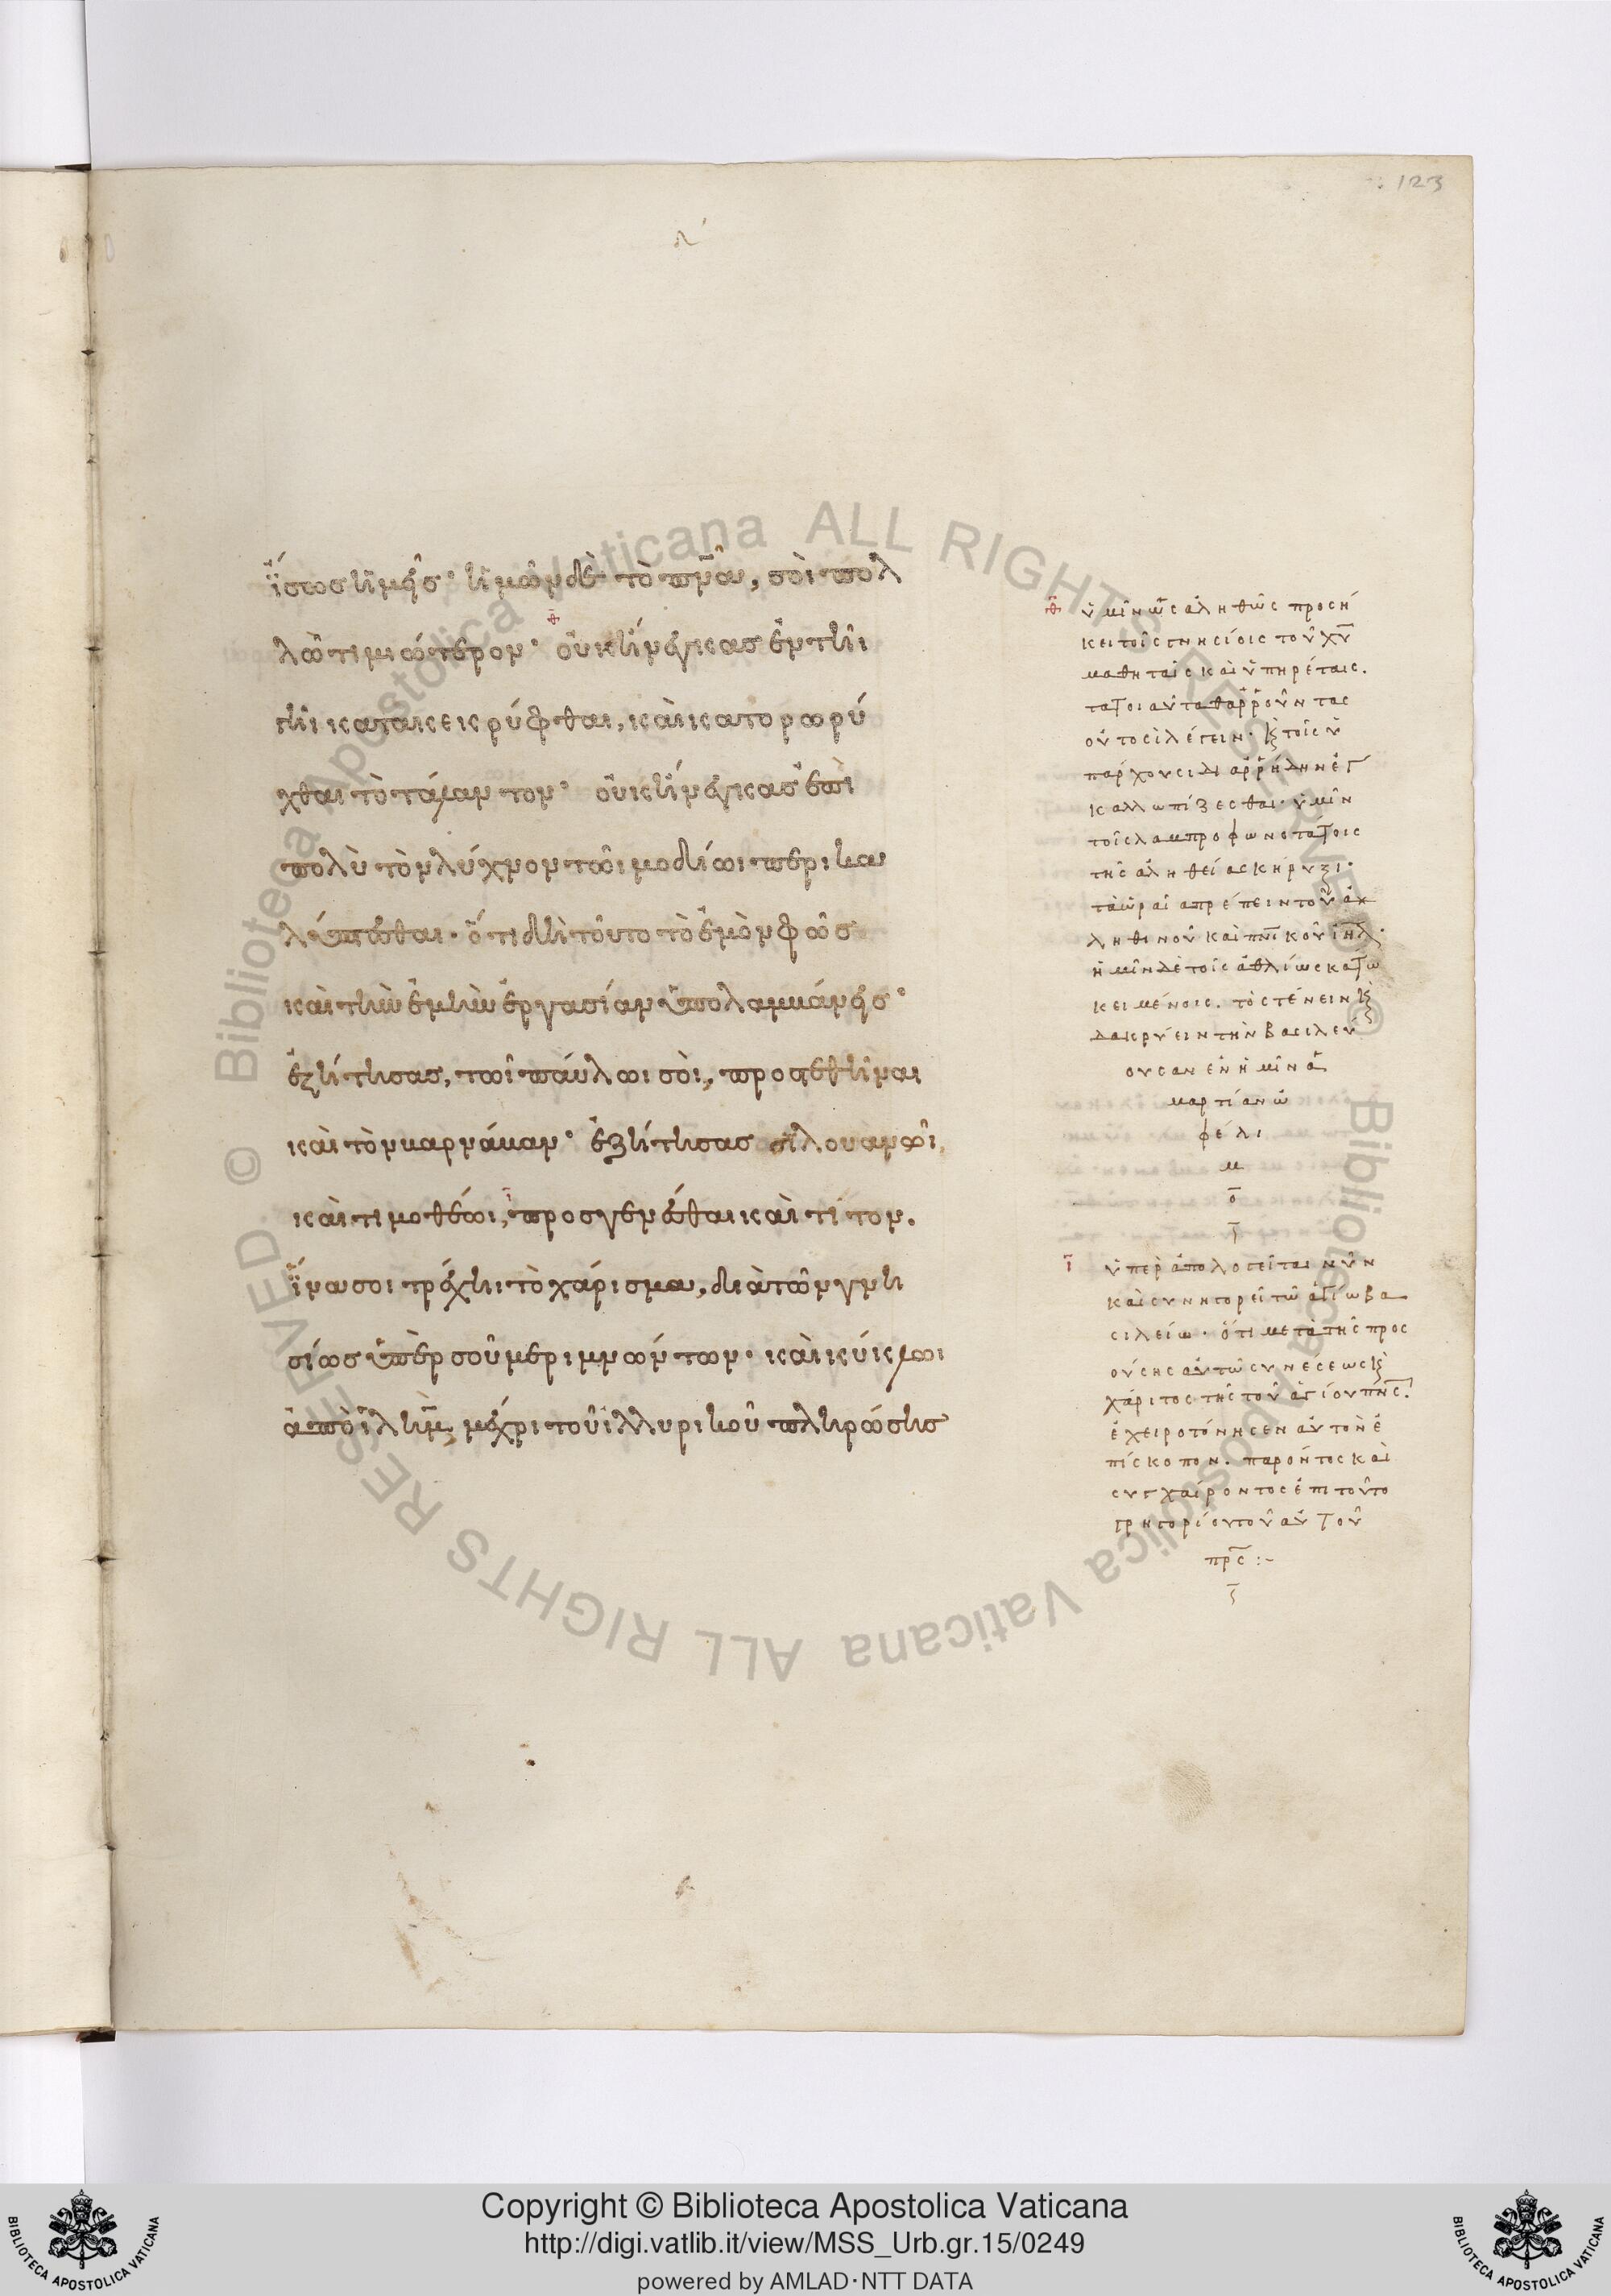 123
λ´
ἴσως ἡμεῖς· ἡμῶν δὲ τὸ πν̅α, σοὶ πολ
λῶ τιμιώτερον· οὐκ ἤνεγκας ἐν τῆι
γῆι κατακεκρύφθαι, καὶ κατορωρύ
χθαι τὸ τάλαντον· οὐκ ἤνεγκας ἐπὶ
πολὺ τὸν λύχνον τῶι μοδίωι περικα
λύπτεσθαι· ὅτι δὴ τοῦτο τὸ ἐμὸν φῶς
καὶ τὴν ἐμὴν ἐργασίαν ὑπολαμβάνεις·
ἐζήτησας, τῶι παύλωι σοὶ, προστεθῆναι
καὶ τὸν βαρνάβαν· ἐζήτησας σιλουανῶι,
καὶ τιμοθέωι, προσγενέσθαι καὶ τίτον.
ἵνα σοι τρέχηι τὸ χάρισμα, διὰ τῶν γνη
σίως ὑπὲρ σοῦ μεριμνώντων· καὶ κύκλωι
ἀπὸ ἱλη̅μ, μέχρι τοῦ ἰλλυρικοῦ πληρώσηις
θ̅ ὑμῖν ὡς ἀληθῶς προσή
κει τοῖς γνησίοις τοῦ χυ̅
μαθηταῖς καὶ ὑπηρέταις.
τὰ τοιαῦτα θαρροῦντας
οὑτοσὶ λέγειν· κ̀ τοῖς ὑ
καλλωπίζεσθαι· ὑμῖν
τοῖς λαμπροφωνοτάτοις
τῆς ἀληθείας κήρυξι·
ληθινοῦ καὶ πν̅ικοῦ ιη̅λ·
ἡμῖν δὲ τοῖς ἀθλίως κάτω
κειμένοις. τὸ στένειν κ̀
δακρύειν τὴν βασιλεύ
ουσαν ἐν ἡμῖν ἁ
μαρτίαν ὠ
φέλι
μ
ο̅
τ̅
ι̅ ὑπεραπολογεῖται νῦν
καὶ συνηγορεῖ τῶ ἁγίω βα
σιλείω· ὅτι μετὰ τῆς προσ
ούσης αὐτῶ συνέσεως κ̀
χάριτος τῆς τοῦ ἁγίου πν̅ς.
ἐχειροτόνησεν αὐτὸν ἐ
πίσκοπον. παρόντος καὶ
συγχαίροντος ἐπὶ τούτο
γρηγορίου τοῦ αὐτοῦ
πρ̅ς :-
Copyright © Biblioteca Apostolica Vaticana
http://digi.vatlib.it/view/MSS_Urb.gr.15/0249
powered by AMLAD·NTT DATA
BIBLIOTECA APOSTOLICA VATICANA
BIBLIOTECA APOSTOLICA VATICANA